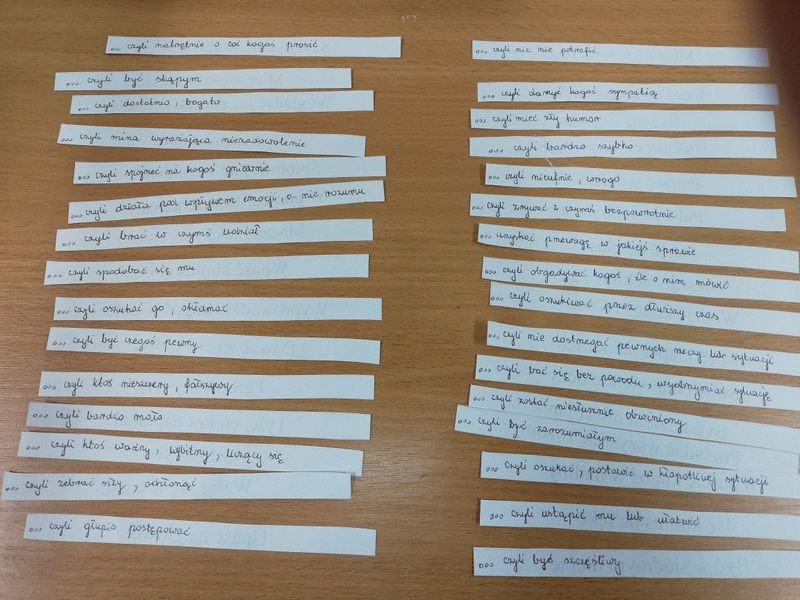 ... czyli natrętnie o coś kogoś prosić
... czyli być skąpym
... czyli dostatnio, bogato
... czyli mina wyrażająca niezadowolenie
... czyli spojrzeć na kogoś gniewnie
... czyli działa pod wpływem emocji, a nie rozumu
... czyli brać w czymś udział
... czyli spodobać się mu
... czyli oszukać go, okłamać
... czyli być czegoś pewny
... czyli ktoś nieszczery, fałszywy
... czyli bardzo mało
... czyli ktoś ważny, wybitny, liczący się
... czyli zebrać siły, ochłonąć
... czyli głupio postępować
... czyli nic nie potrafić
... czyli darzyć kogoś sympatią
... czyli mieć zły humor
... czyli bardzo szybko
... czyli nieufnie, wrogo
... czyli zrywać z czymś bezpowrotnie
... uzyskać przewagę w jakiejś sprawie
... czyli obgadywać kogoś, źle o nim mówić
... czyli oszukiwać przez dłuższy czas
... czyli nie dostrzegać pewnych rzeczy lub sytuacji
... czyli bać się bez powodu, wyolbrzymiać sytuację
... czyli zostać niesłusznie obwiniony
... czyli być zarozumiałym
... czyli oszukać, postawić w kłopotliwej sytuacji
... czyli ustąpić mu lub ułatwić
... czyli być szczęśliwy